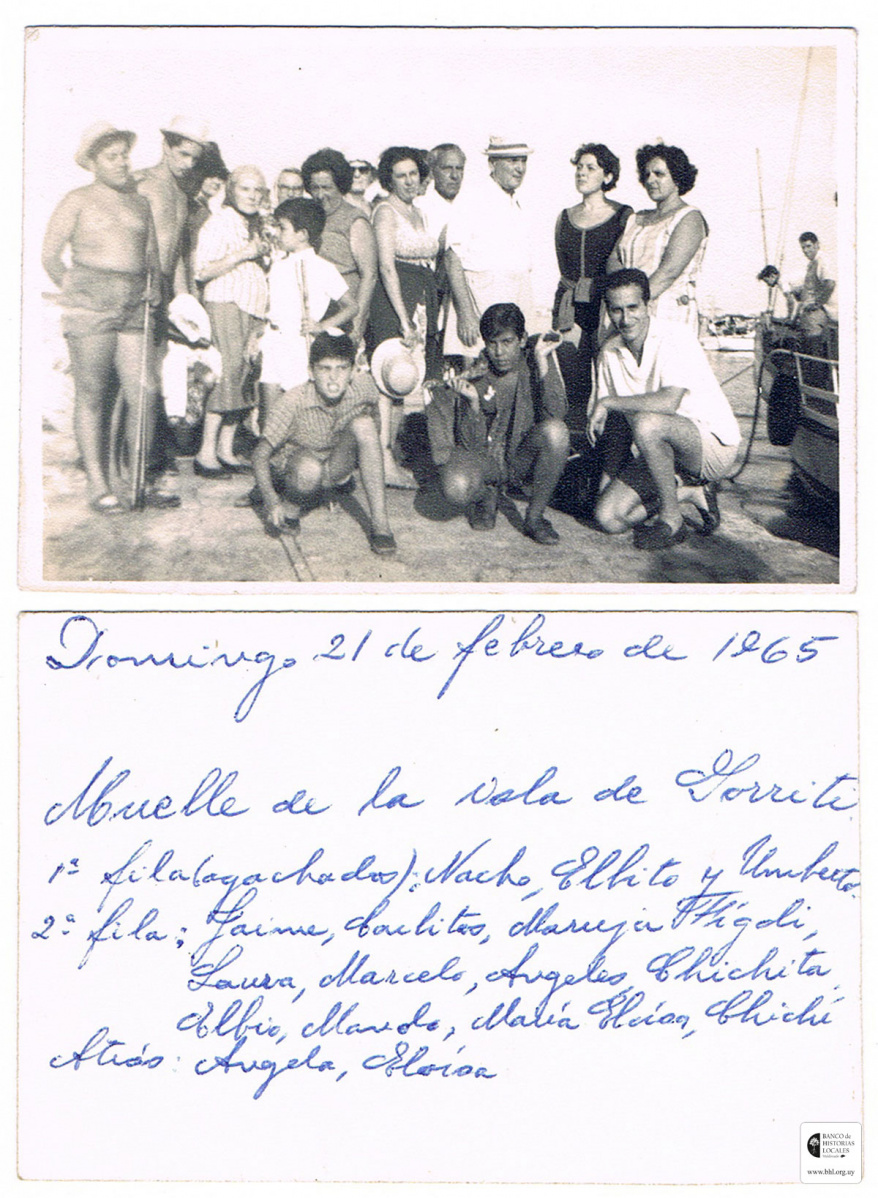 Domingo 21 de febrero de 1965
Muelle de la isla de Gorriti.
1ª fila (agachados): Nacho, Elbito y Umberto.
2ª fila: Jaime, Carlitos, Maruja Fígoli,
Laura, Marcelo, Angeles, Chichita,
Elbio, Mando, María Eloísa, Chiché
Atrás: Angela, Eloísa
BANCO de
HISTORIAS
LOCALES
www.bhl.org.uy